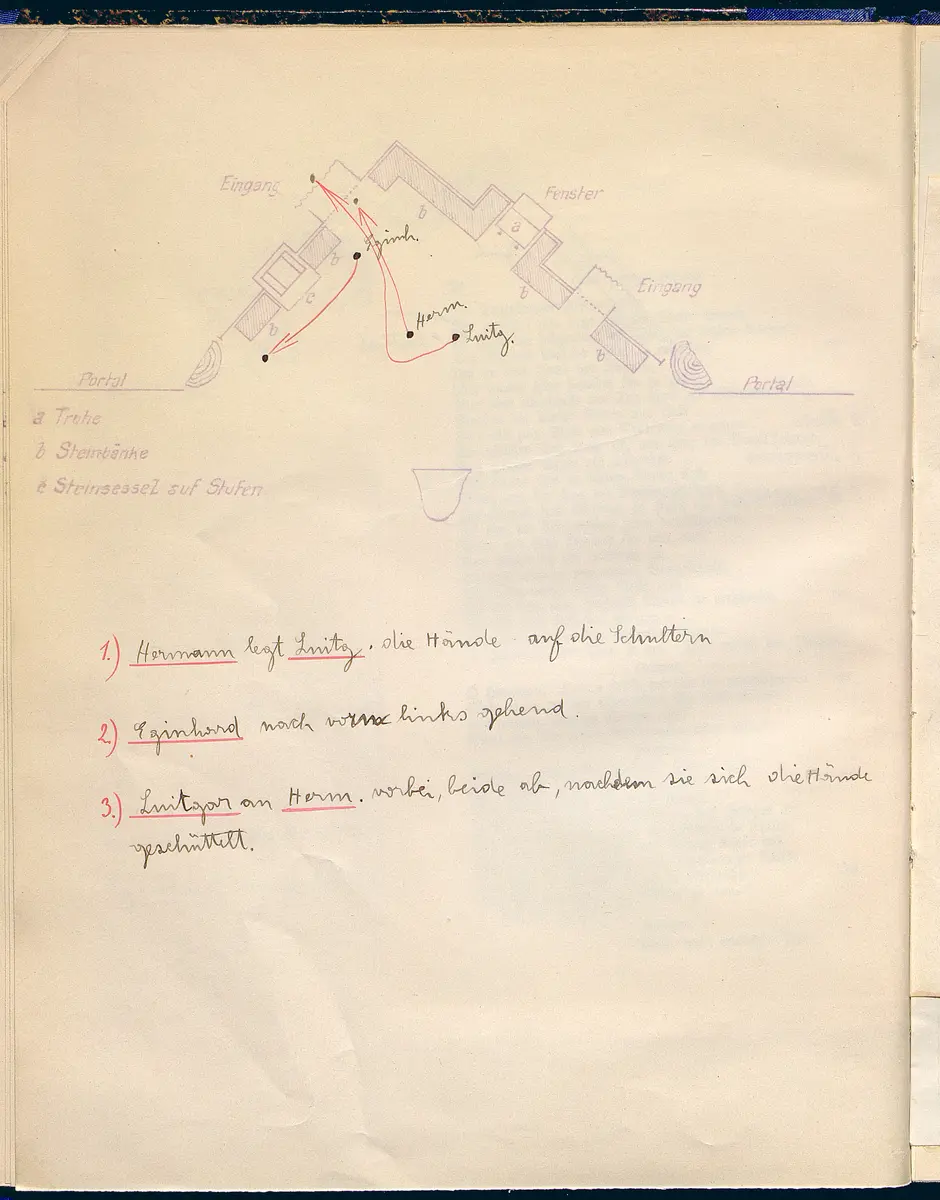 Eingang
Fenster
b
a
Eginh.
b
c
b
Eingang
Herm.
Luitg.
b
b
Portal
Portal
a Truhe
b Steinbänke
c Steinsessel auf Stufen
1.) Hermann legt Luitg. die Hände auf die Schultern
2.) Eginhard nach vorn links gehend.
3.) Luitgar an Herm. vorbei, beide ab, nachdem sie sich die Hände
geschüttelt.